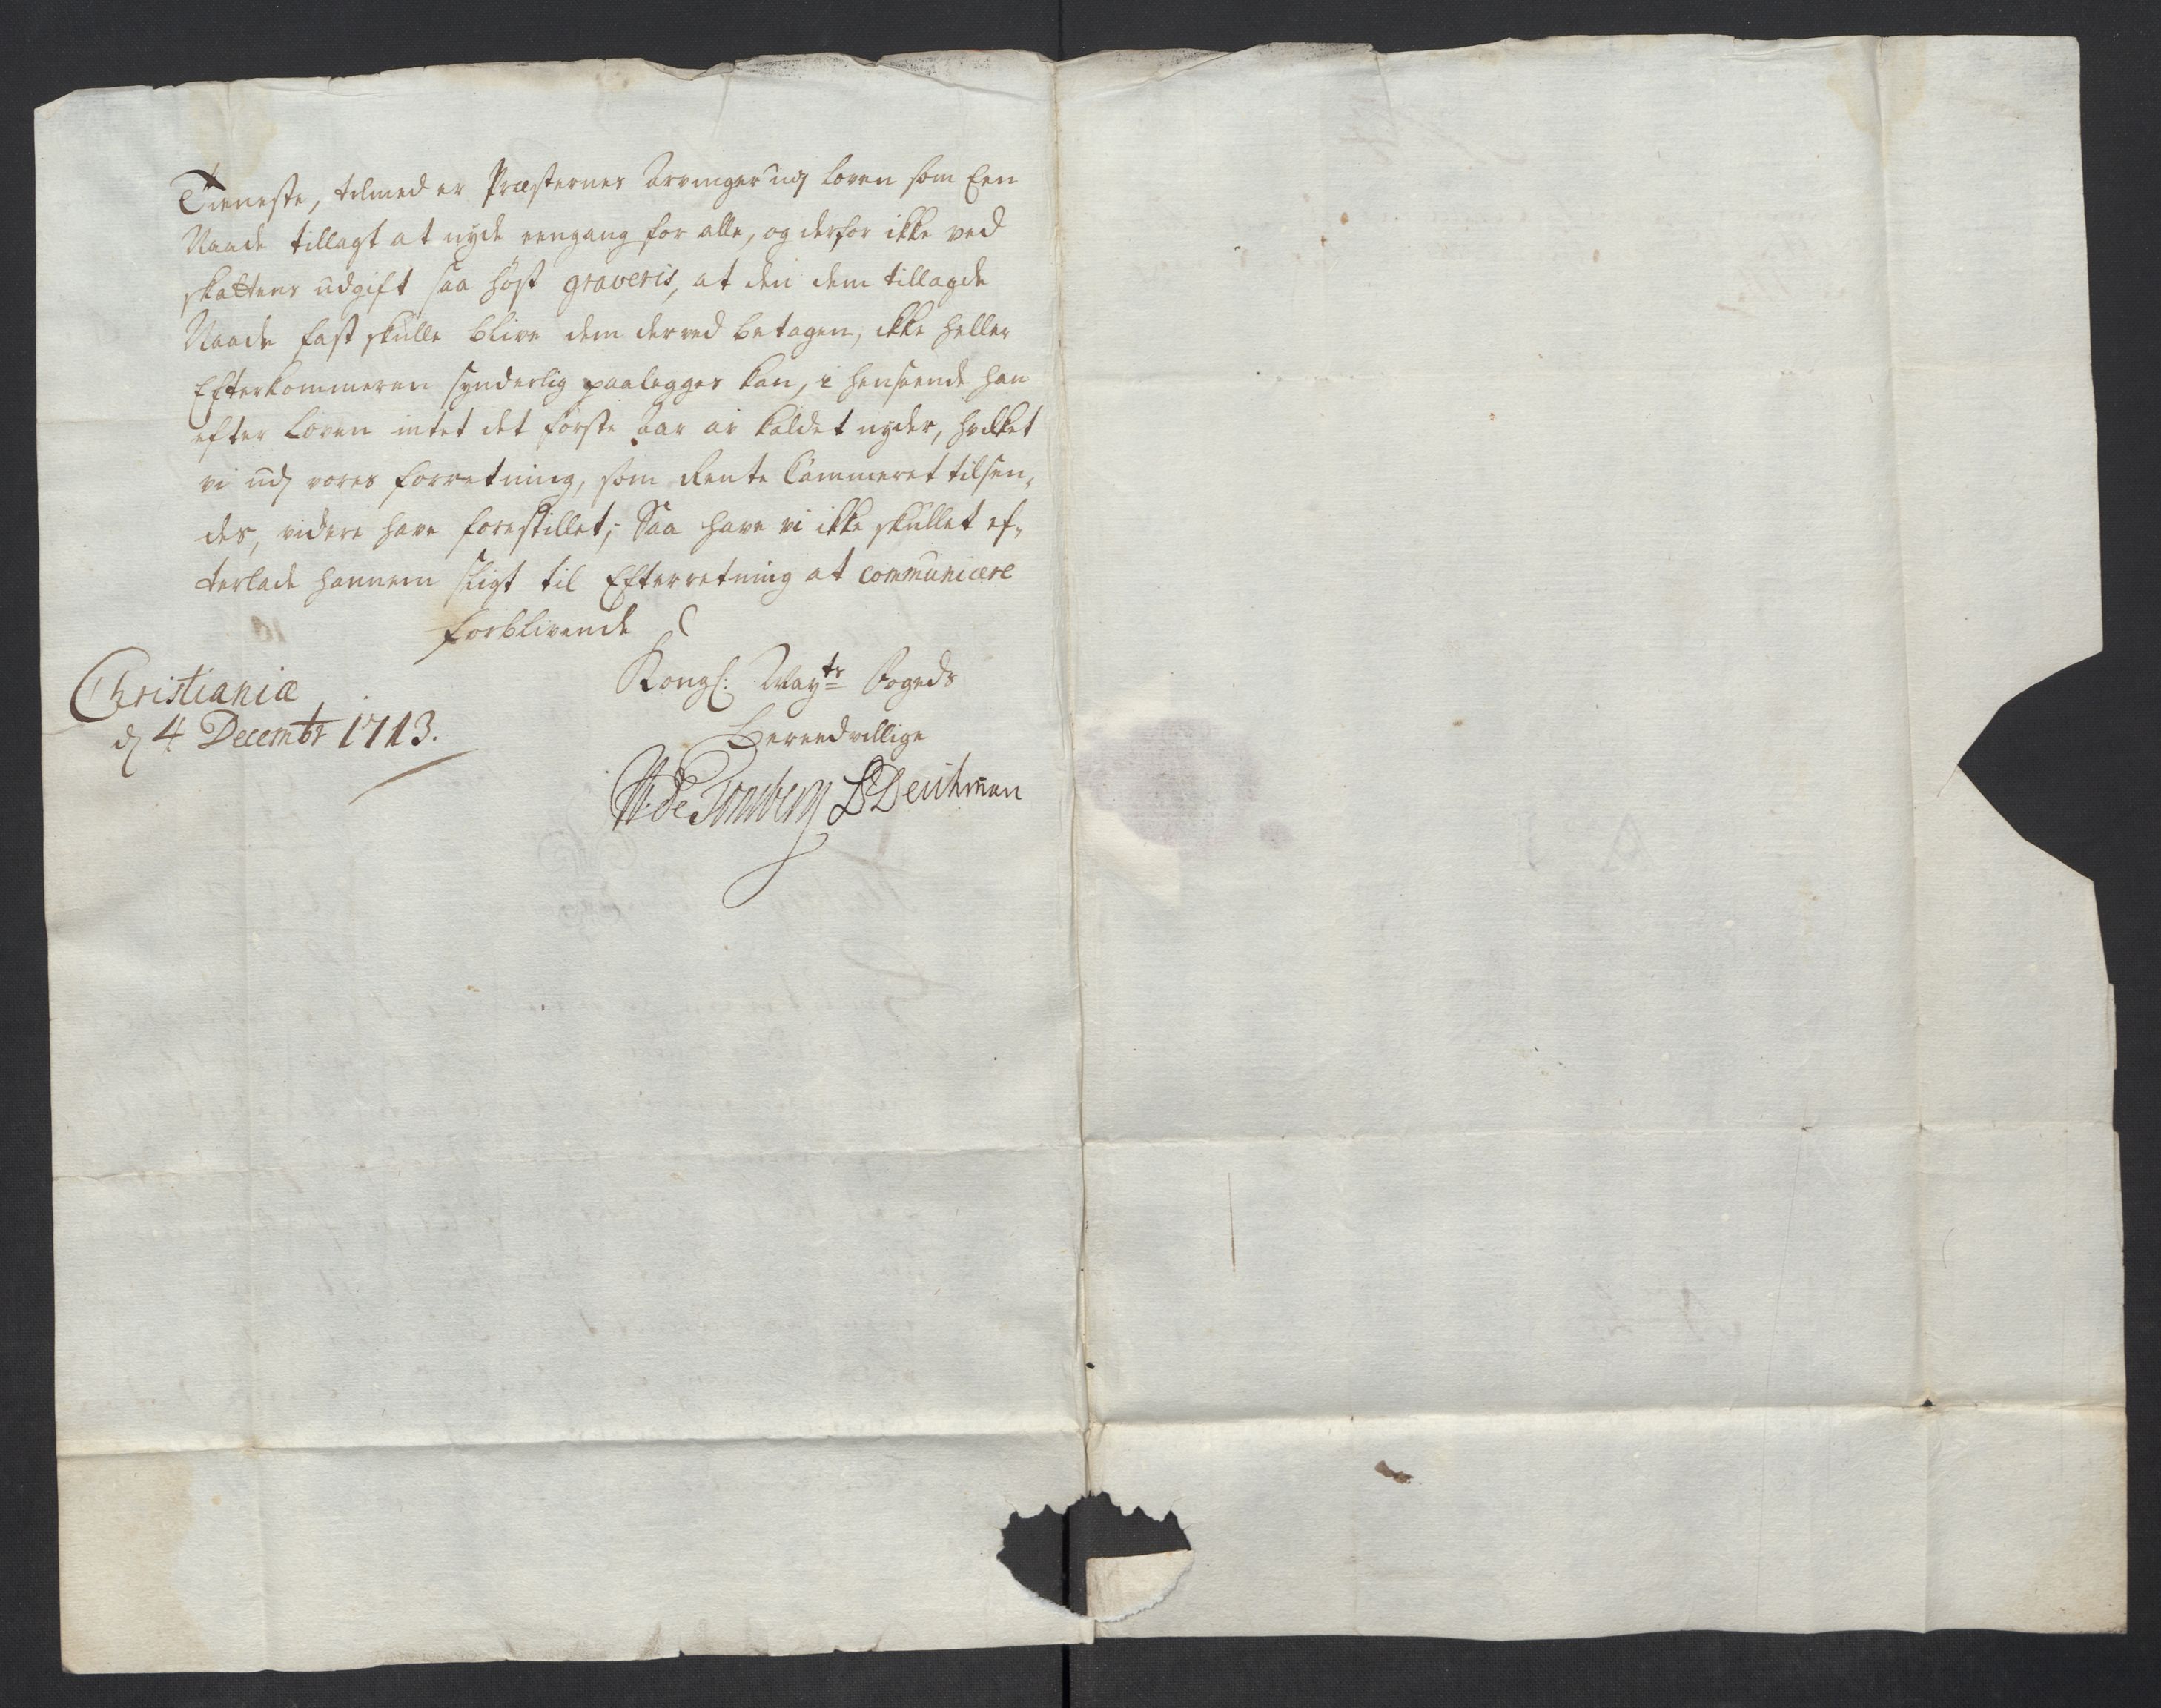 Tieneste, tilmed er Præsternes Arvinger udj loven som Een
Naade tillagt at nyde eengang for alle, og derfor ikke ved
skattens udgift saa høyt graveris, at den dem tillagde
Naade fast skulle blive dem derved betagen, ikke heller
Efterkommeren synderlig paalegges kan, i henseende han
efter Loven intet det første Aar av kaldet nyder, hvilket
vi udj vores forretning, som Rente Cammeret tilsen,
des, videre have forestillet; Saa have vi ikke skullet ef,
terlade hannem sligt til Efterretning at communicere
forblivende
Kongl: Mayts Fogeds
Christianiæ
d 4 Decembr 1713.
Bereedvillige
W: de Tonsberg BDeichman